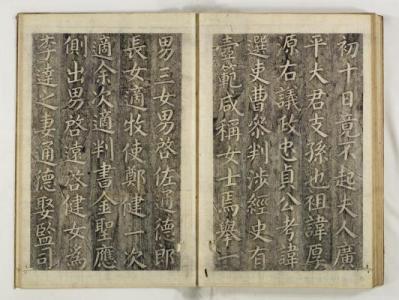 初十日竟不起夫人廣
平大君支孫也祖諱厚
源右議政忠貞公考諱
選吏曹叅判涉經史有
壼範咸稱女士焉舉一
男三女男啓佐通德郎
長女適牧使鄭健一次
適余次適判書金聖應
側出男啓遠啓健女爲
李達之妻通德娶監司